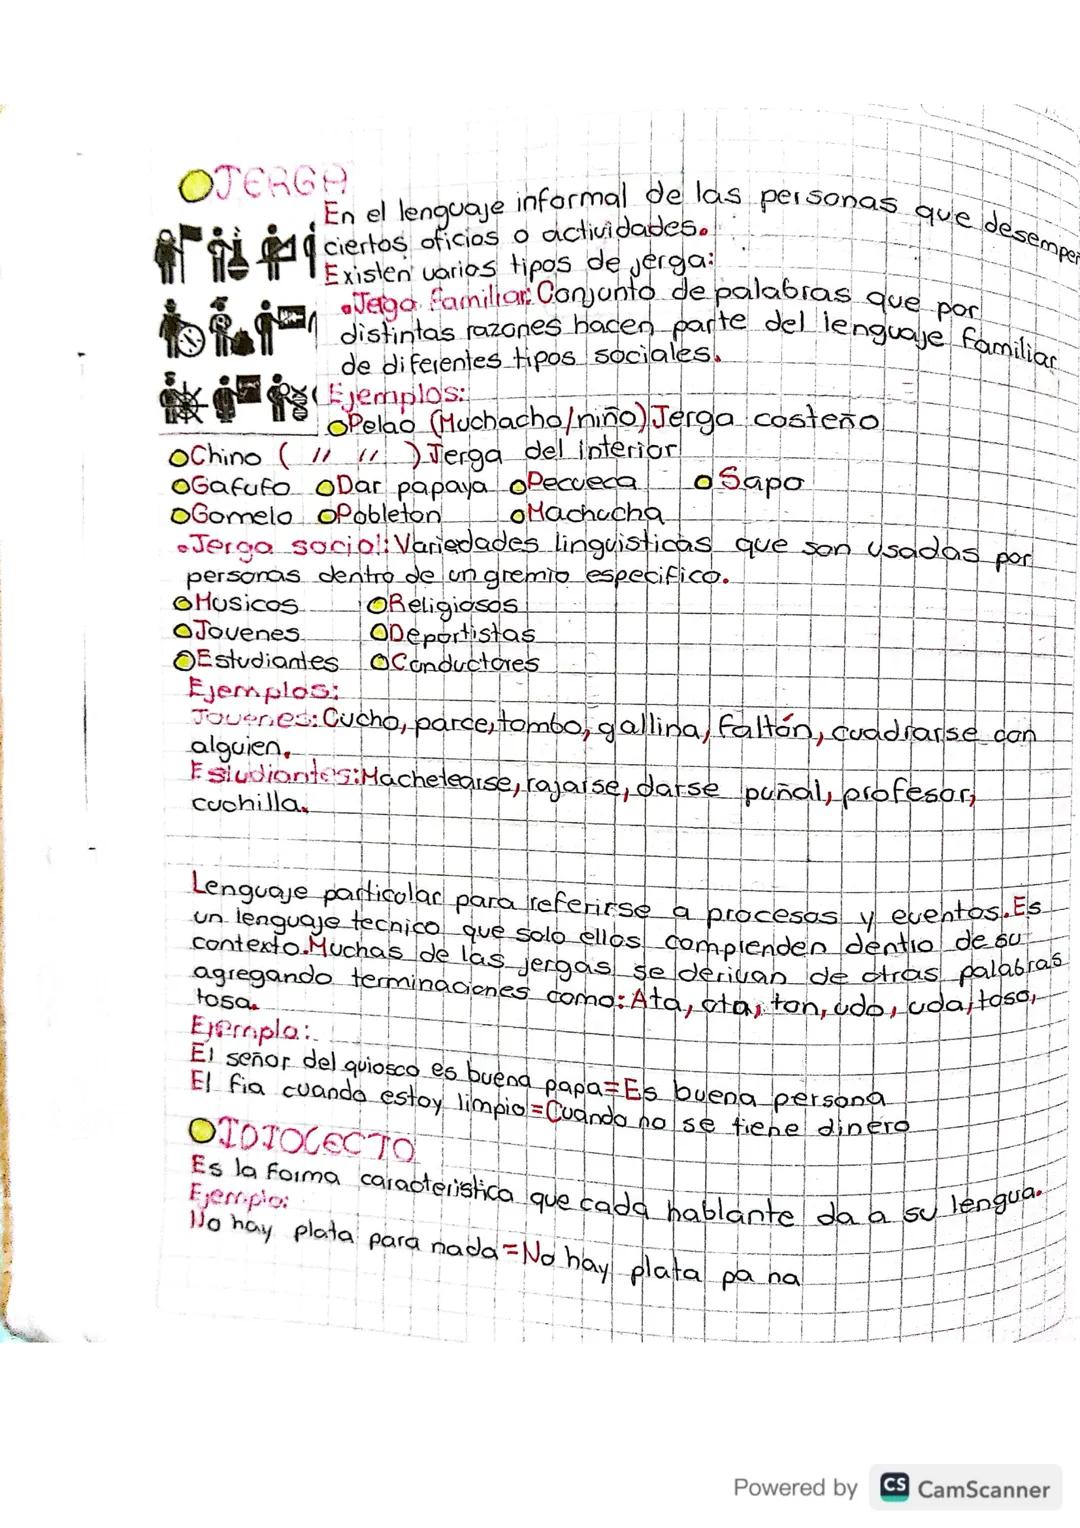 JERGA
En el lenguaje informal de las personas que desempeñ
ciertos oficios o actividades.
Existen varios tipos de jerga:
•Jega familiar: Conjunto de palabras que por
distintas razones hacen parte del lenguaje familiar
de diferentes tipos sociales.
Ejemplos:
Pelao (Muchacho/niño) Jerga costeño
Chino ( " " ) Jerga del interior
Gafufo Dar papaya Pecueca Sapo
Gomelo Pobleton Machucha
•Jerga social: Variedades linguisticas que son usadas por
personas dentro de un gremio especifico.
Musicos Religiosos
Jovenes Deportistas
Estudiantes Conductores
Ejemplos:
Jovenes: Cucho, parce, tombo, gallina, faltón, cuadrarse con
alguien.
Estudiantes: Machetearse, rajarse, darse puñal, profesor,
cuchilla.
Lenguaje particolar para referirse a procesos y eventos. Es
un lenguaje tecnico que solo ellos comprenden dentro de su
contexto. Muchas de las jergas se derivan de otras palabras
agregando terminaciones como: Ata, ota, ton, udo, uda, toso,
tosa.
Ejemplo:
El señor del quiosco es buena papa = Es buena persona
El fia cuando estoy limpio = Cuando no se tiene dinero
IDIOLECTO
Es la forma caracteristica que cada hablante da a su lengua.
Ejemplo:
No hay plata para nada = No hay plata pa na
Powered by CS CamScanner